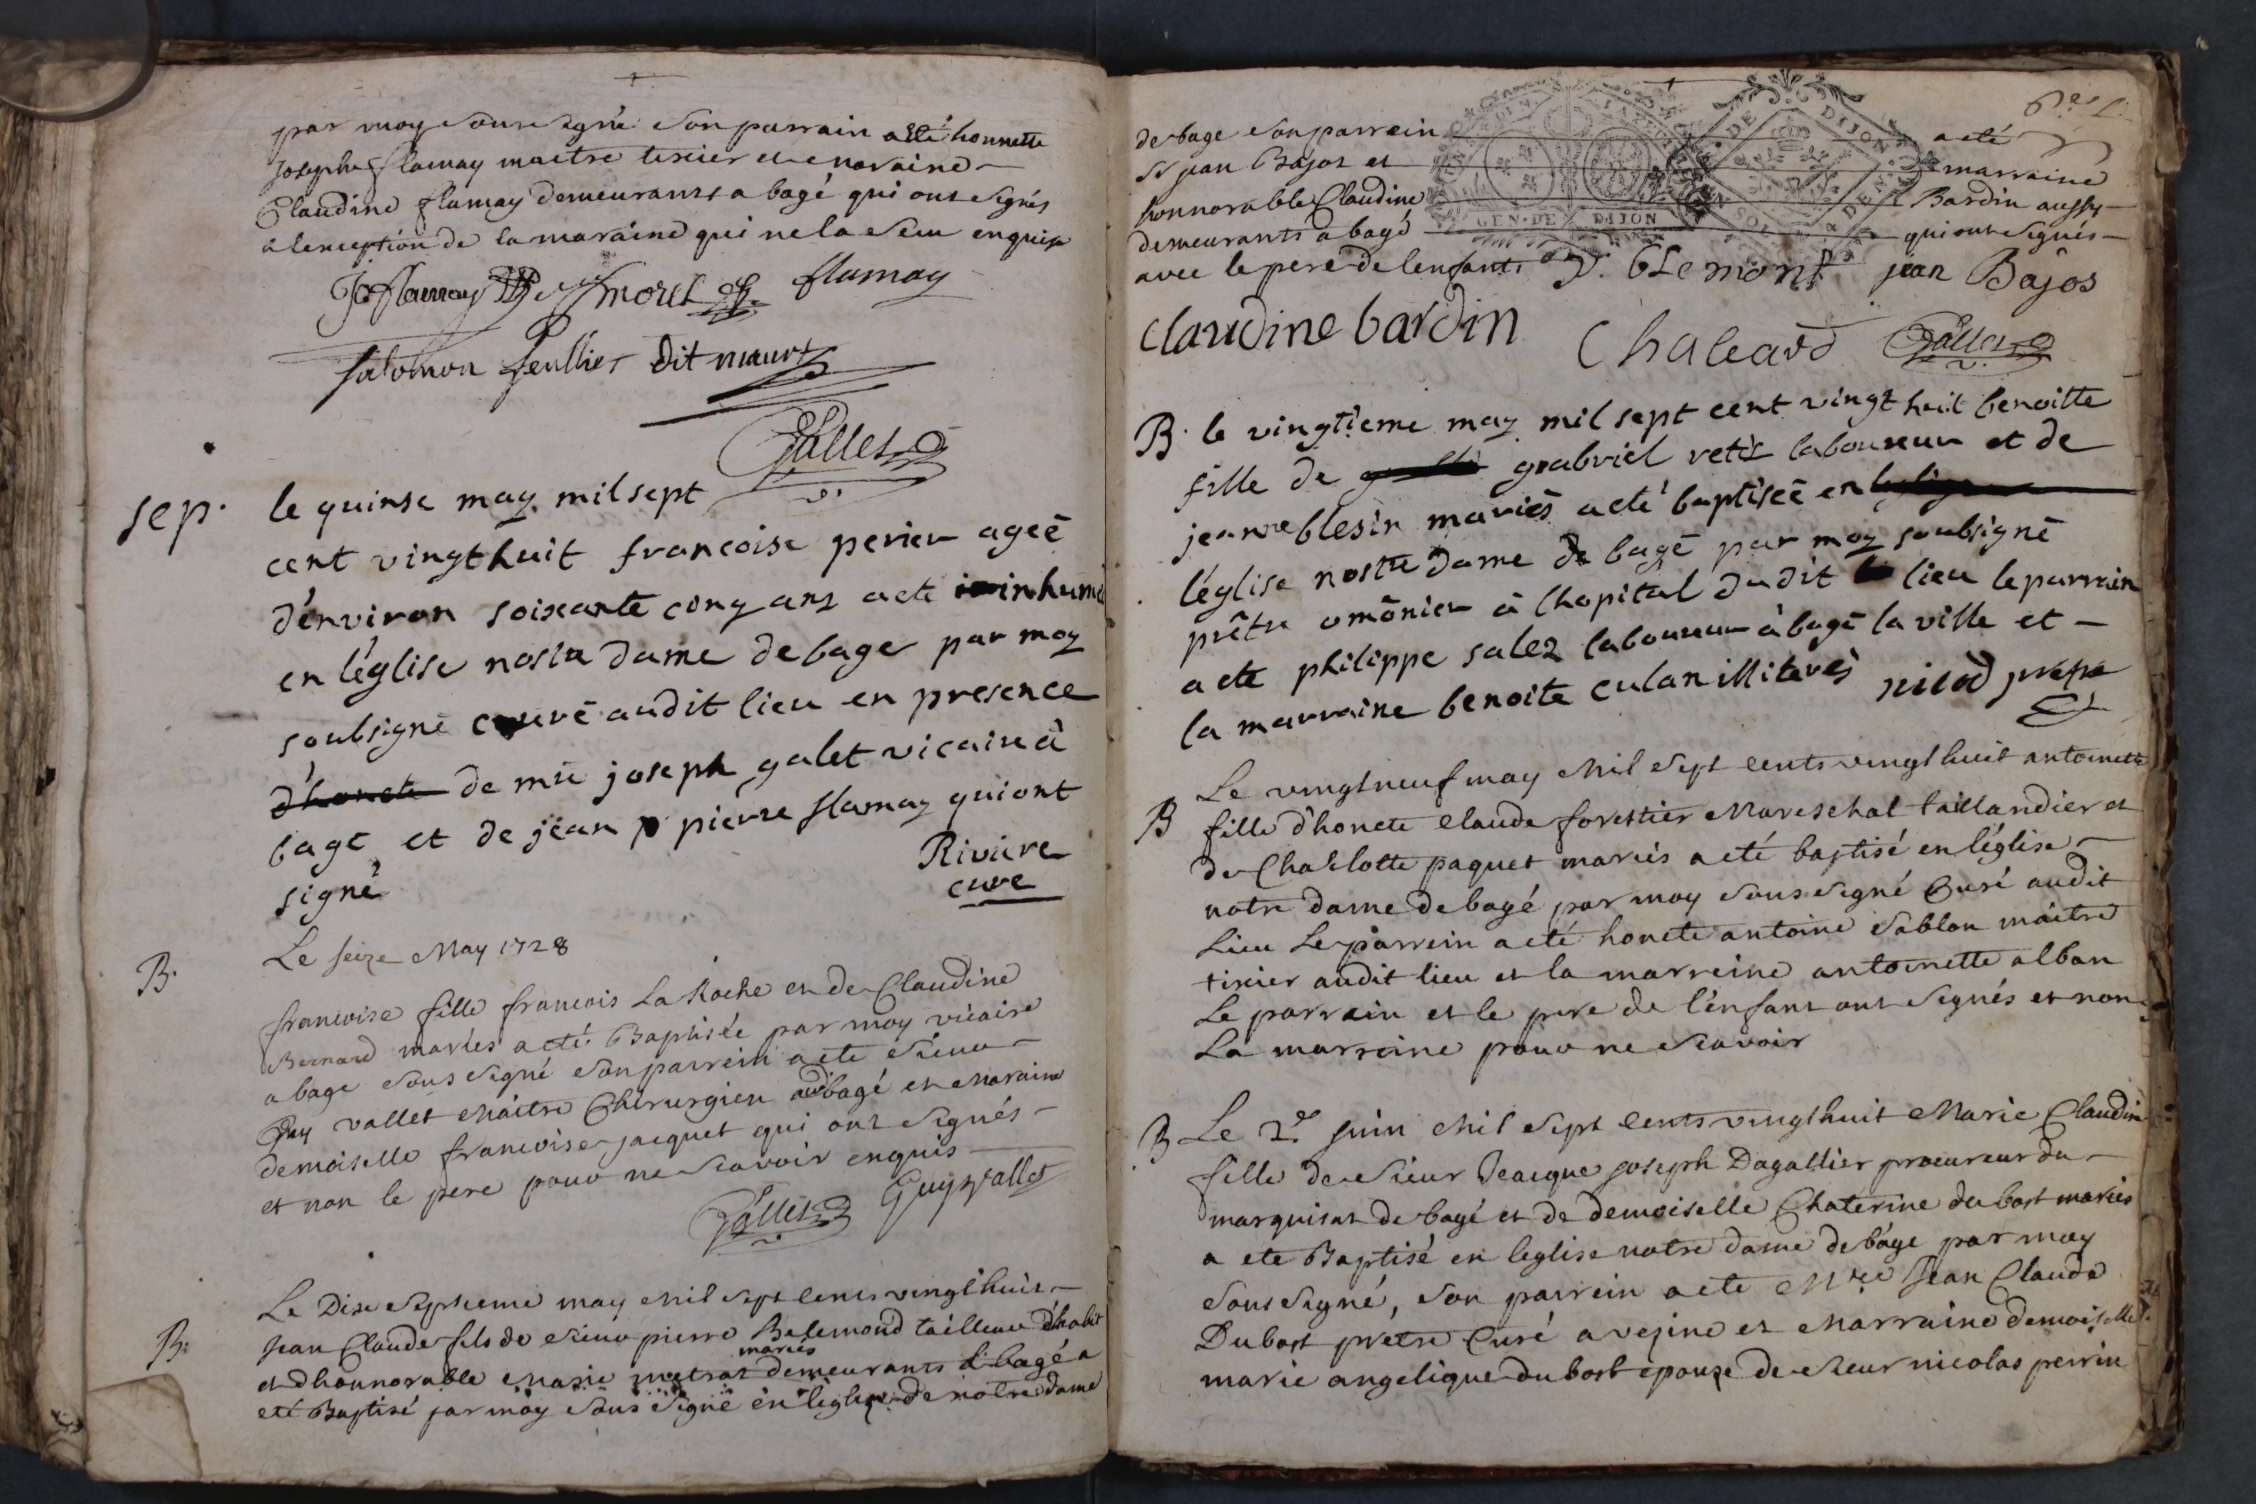 par moy sousigné son parrain a été honnette
Joseph flamay maitre tixier et maraine
Claudine flamay demeurants a bagé qui ont signés
a lexception de la maraine qui ne la sceu enquise
Jo flamay morel flamay
Salomon dit
Gallet
sep. le quinse may mil sept
cent vingt huit francoise perier ageé
d'environ soixante cinq ans a eté inhumé
en l'église nostre dame de bagé par moy
soubsigné curé audit lieu en presence
d'honete de mre joseph galet vicaire à
bagé et de jean p pierre flamay qui ont
signé Riviere
curé
B. Le seize May 1728
francoise fille francois La Roche et de Claudine
Bernard mariés a eté Baptisée par moy vicaire
a bage sous signé son parrein a ete sieur
Guy vallet Maitre Chirurgien a bagé et Maraine
demoiselle francoise jacquet qui ont signés
et non le pere pour ne scavoir enquis
Gallet Guy Vallet
B. Le Dix septieme may Mil sept cents vingt huit
Jean Claude fils de sieur pierre Belemond tailleur d'habit
mariés
et dhonnorable Marie demeurants a bagé a
eté Baptisé par moy sous signé en leglise de notre dame
de bage son parrein a eté
Sr jean Bajos et marraine
honnorable Claudine Bardin aussy
demeurants a bagé qui ont signés
avec le pere de lenfant P. blemont jean Bajos
GEN · DE DIJON
claudine bardin Chaleard Gallet
B. le vingtieme may mil sept cent vingt huit benoitte
fille de gabriel laboureur et de
jeanne blesin mariés a eté baptiseé en
l'église nostre dame de bagé par moy soubsigné
prêtre omônier à lhopital dudit lieu le parrain
a ete philippe salez laboureur à bagé la ville et
la marraine benoite culan illiterés
Le vingt neuf may Mil sept cents vingt huit antoinette
B fille d'honete Claude forestier Mareschal taillandier et
de Charlotte paquet mariés a eté baptisé en l'église
notre dame de bagé par moy sous signé Curé audit
Lieu Le parrein a eté honete antoine Sablon maitre
tixier audit lieu et la marreine antoinette alban
Le parrain et le pere de l'enfant ont signés et non
La marreine pour ne scavoir
B Le 2e Juin Mil sept cents vingt huit Marie Claudin
fille de sieur Jeacque Joseph Dagallier procureur du
marquisat de bagé et de demoiselle Chaterine dubost mariés
a ete Baptisé en leglise notre dame de bage par moy
sous signé, son parrein a ete Mre Jean Claude
Dubost prètre Curé a vezine et Marraine demoiselle
marie angelique dubost épouze de sieur nicolas perrin